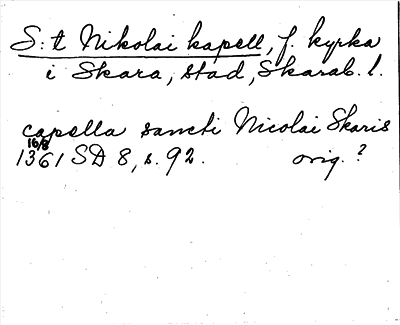 S:t Nikolai kapell, f. kyrka
i Skara, stad, Skarab. l.
capella sancti Nicolai Skaris
16/8
1361 SD 8, s. 92. orig. ?